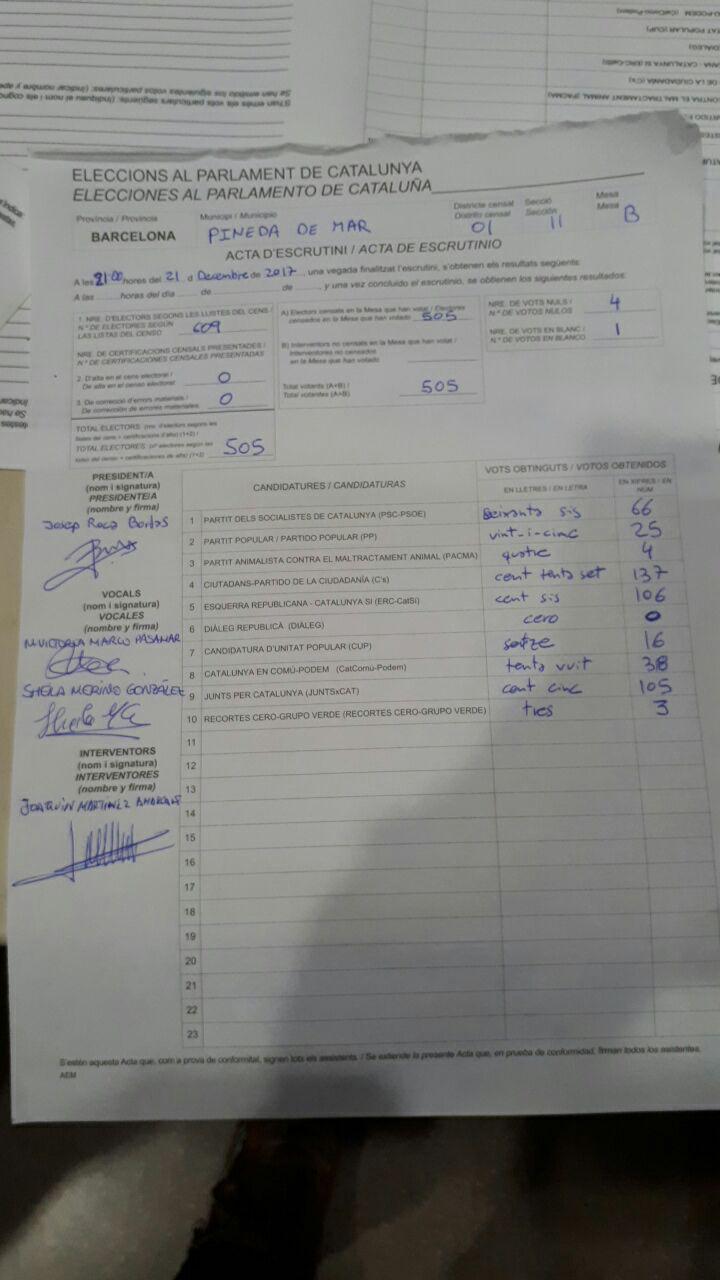 ELECCIONS AL PARLAMENT DE CATALUNYA
ELECCIONES AL PARLAMENTO DE CATALUÑA
Província / Provincia
BARCELONA
Municipi / Municipio
PINEDA DE MAR
Districte censal
Distrito censal
01
Secció
Sección
11
Mesa
Mesa
B
ACTA D'ESCRUTINI / ACTA DE ESCRUTINIO
A les 21:00 hores del 21 d Decembre de 2017, una vegada finalitzat l'escrutini, s'obtenen els resultats següents:
A las ........ horas del día ........ de ........ de ........, y una vez concluido el escrutinio, se obtienen los siguientes resultados:
1. NRE. D'ELECTORS SEGONS LES LLISTES DEL CENS /
N.º DE ELECTORES SEGÚN
LAS LISTAS DEL CENSO
609
NRE. DE CERTIFICACIONS CENSALS PRESENTADES /
N.º DE CERTIFICACIONES CENSALES PRESENTADAS
2. D'alta en el cens electoral /
De alta en el censo electoral
0
3. De correcció d'errors materials /
De corrección de errores materiales
0
TOTAL ELECTORS (nre. d'electors segons les
llistes del cens + certificacions d'alta) (1+2) /
TOTAL ELECTORES (nº electores según las
listas del censo + certificaciones de alta) (1+2)
505
A) Electors censats en la Mesa que han votat / Electores
censados en la Mesa que han votado
505
B) Interventors no censats en la Mesa que han votat /
Interventores no censados
en la Mesa que han votado
Total votants (A+B) /
Total votantes (A+B)
505
NRE. DE VOTS NULS /
N.º DE VOTOS NULOS
4
NRE. DE VOTS EN BLANC /
N.º DE VOTOS EN BLANCO
1
PRESIDENT/A
(nom i signatura)
PRESIDENTE/A
(nombre y firma)
Josep Roca Bordas
VOCALS
(nom i signatura)
VOCALES
(nombre y firma)
M. VICTORIA MARCO PASAMAR
SHEILA MERINO GONZÁLEZ
INTERVENTORS
(nom i signatura)
INTERVENTORES
(nombre y firma)
JOAQUIN MARTINEZ
CANDIDATURES / CANDIDATURAS
VOTS OBTINGUTS / VOTOS OBTENIDOS
EN LLETRES / EN LETRA
EN XIFRES / EN NÚM
1 PARTIT DELS SOCIALISTES DE CATALUNYA (PSC-PSOE) Seixanta sis 66
2 PARTIT POPULAR / PARTIDO POPULAR (PP) vint-i-cinc 25
3 PARTIT ANIMALISTA CONTRA EL MALTRACTAMENT ANIMAL (PACMA) quatre 4
4 CIUTADANS-PARTIDO DE LA CIUDADANÍA (C's) cent tenta set 137
5 ESQUERRA REPUBLICANA - CATALUNYA SÍ (ERC-CatSí) cent sis 106
6 DIÀLEG REPUBLICÀ (DIÀLEG) cero 0
7 CANDIDATURA D'UNITAT POPULAR (CUP) setze 16
8 CATALUNYA EN COMÚ-PODEM (CatComú-Podem) tenta vuit 38
9 JUNTS PER CATALUNYA (JUNTSxCAT) cent cinc 105
10 RECORTES CERO-GRUPO VERDE (RECORTES CERO-GRUPO VERDE) tres 3
11
12
13
14
15
16
17
18
19
20
21
22
23
S'estén aquesta Acta que, com a prova de conformitat, signen tots els assistents. / Se extiende la presente Acta que, en prueba de conformidad, firman todos los asistentes.
AEM